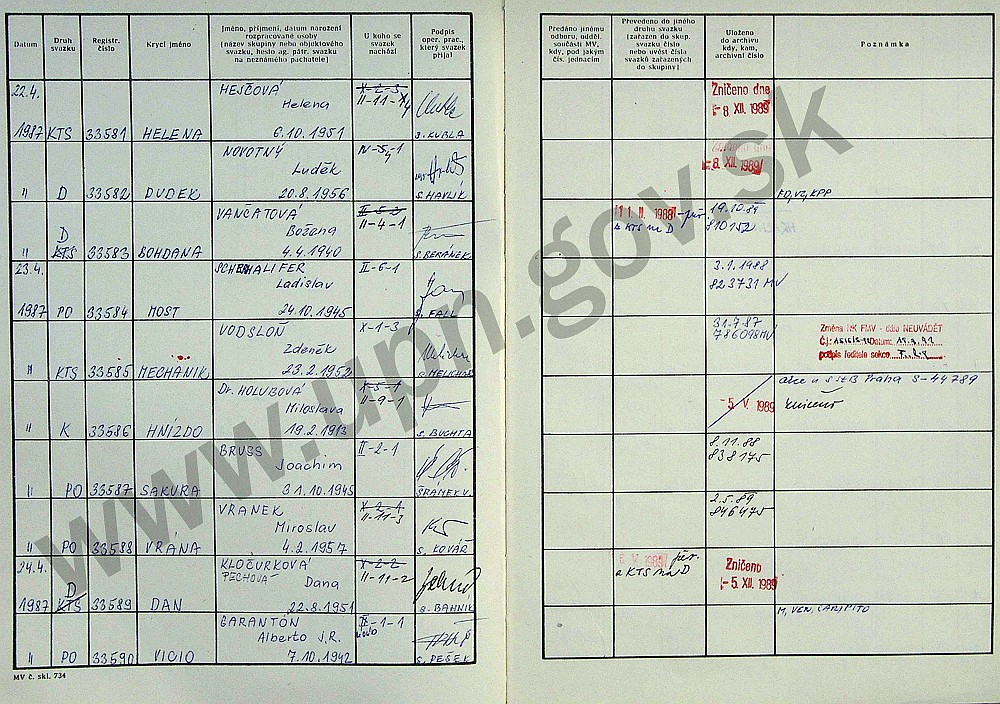 Datum
Druh svazku
Registr. číslo
Krycí jméno
Jméno, příjmení, datum narození rozpracované osoby
(název skupiny nebo objektového svazku, heslo ag. pátr. svazku na neznámého pachatele)
U koho se svazek nachází
Podpis oper. prac., který svazek přijal
Předáno jinému odboru, odděl. součásti MV, kdy, pod jakým čís. jednacím
Převedeno do jiného druhu svazku (zařazen do skup. svazku číslo nebo uvést čísla svazků zařazených do skupiny)
Uloženo do archivu kdy, kam, archivní číslo
Poznámka
22.4. HEJČOVÁ X-2-3
Helena II-11-4
1987 KTS 33581 HELENA 6.10.1951 s. KUBLA
Zničeno dne
-8. XII. 1989
NOVOTNÝ
Luděk
" D 33582 DUDEK 20.8.1956 s. HAVLÍK
-8. XII. 1989
VANČATOVÁ
D Božena II-4-1
" KTS 33583 BOHDANA 4.4.1940 s. BERÁNEK
11. II. 1988
z KTS na D
810152
23.4. SCHENHALIFER II-6-1
Ladislav
1987 PO 33584 MOST 24.10.1945 s. FALL
3.1.1988
823731 MV
VODSLOŇ X-1-3
Zdeněk
" KTS 33585 MECHANIK 23.2.1952 s. MELICHAR
31.7.87
786098 MV
Změna NK FMV - dále NEUVÁDĚT
Č.j.: Datum:
podpis ředitele sekce
Dr. HOLUBOVÁ X-5-1
Miloslava II-9-1
" K 33586 HNÍZDO 19.2.1913 s. BUCHTA
-5. V. 1989
akce u S StB Praha S-44789
zničeno
BRUSS II-2-1
Joachim
" PO 33587 SAKURA 31.10.1945 ŠRÁMEK V.
8.11.88
838175
VRANEK
Miroslav II-11-3
" PO 33588 VRÁNA 4.2.1957 s. KOVÁŘ
2.5.89
846475
24.4. KLOČURKOVÁ X-2-2
D PECHOVÁ Dana II-11-2
1987 KTS 33589 DAN 22.8.1951 s. BAHNIK
z KTS na D
Zničeno
-5. XII. 1989
GARANTÓN IX-1-1
Alberto J.R.
" PO 33590 VICIO 7.10.1942 s. PEŠEK
M, VEN, CARIPITO
MV č. skl. 734
www.upn.gov.sk